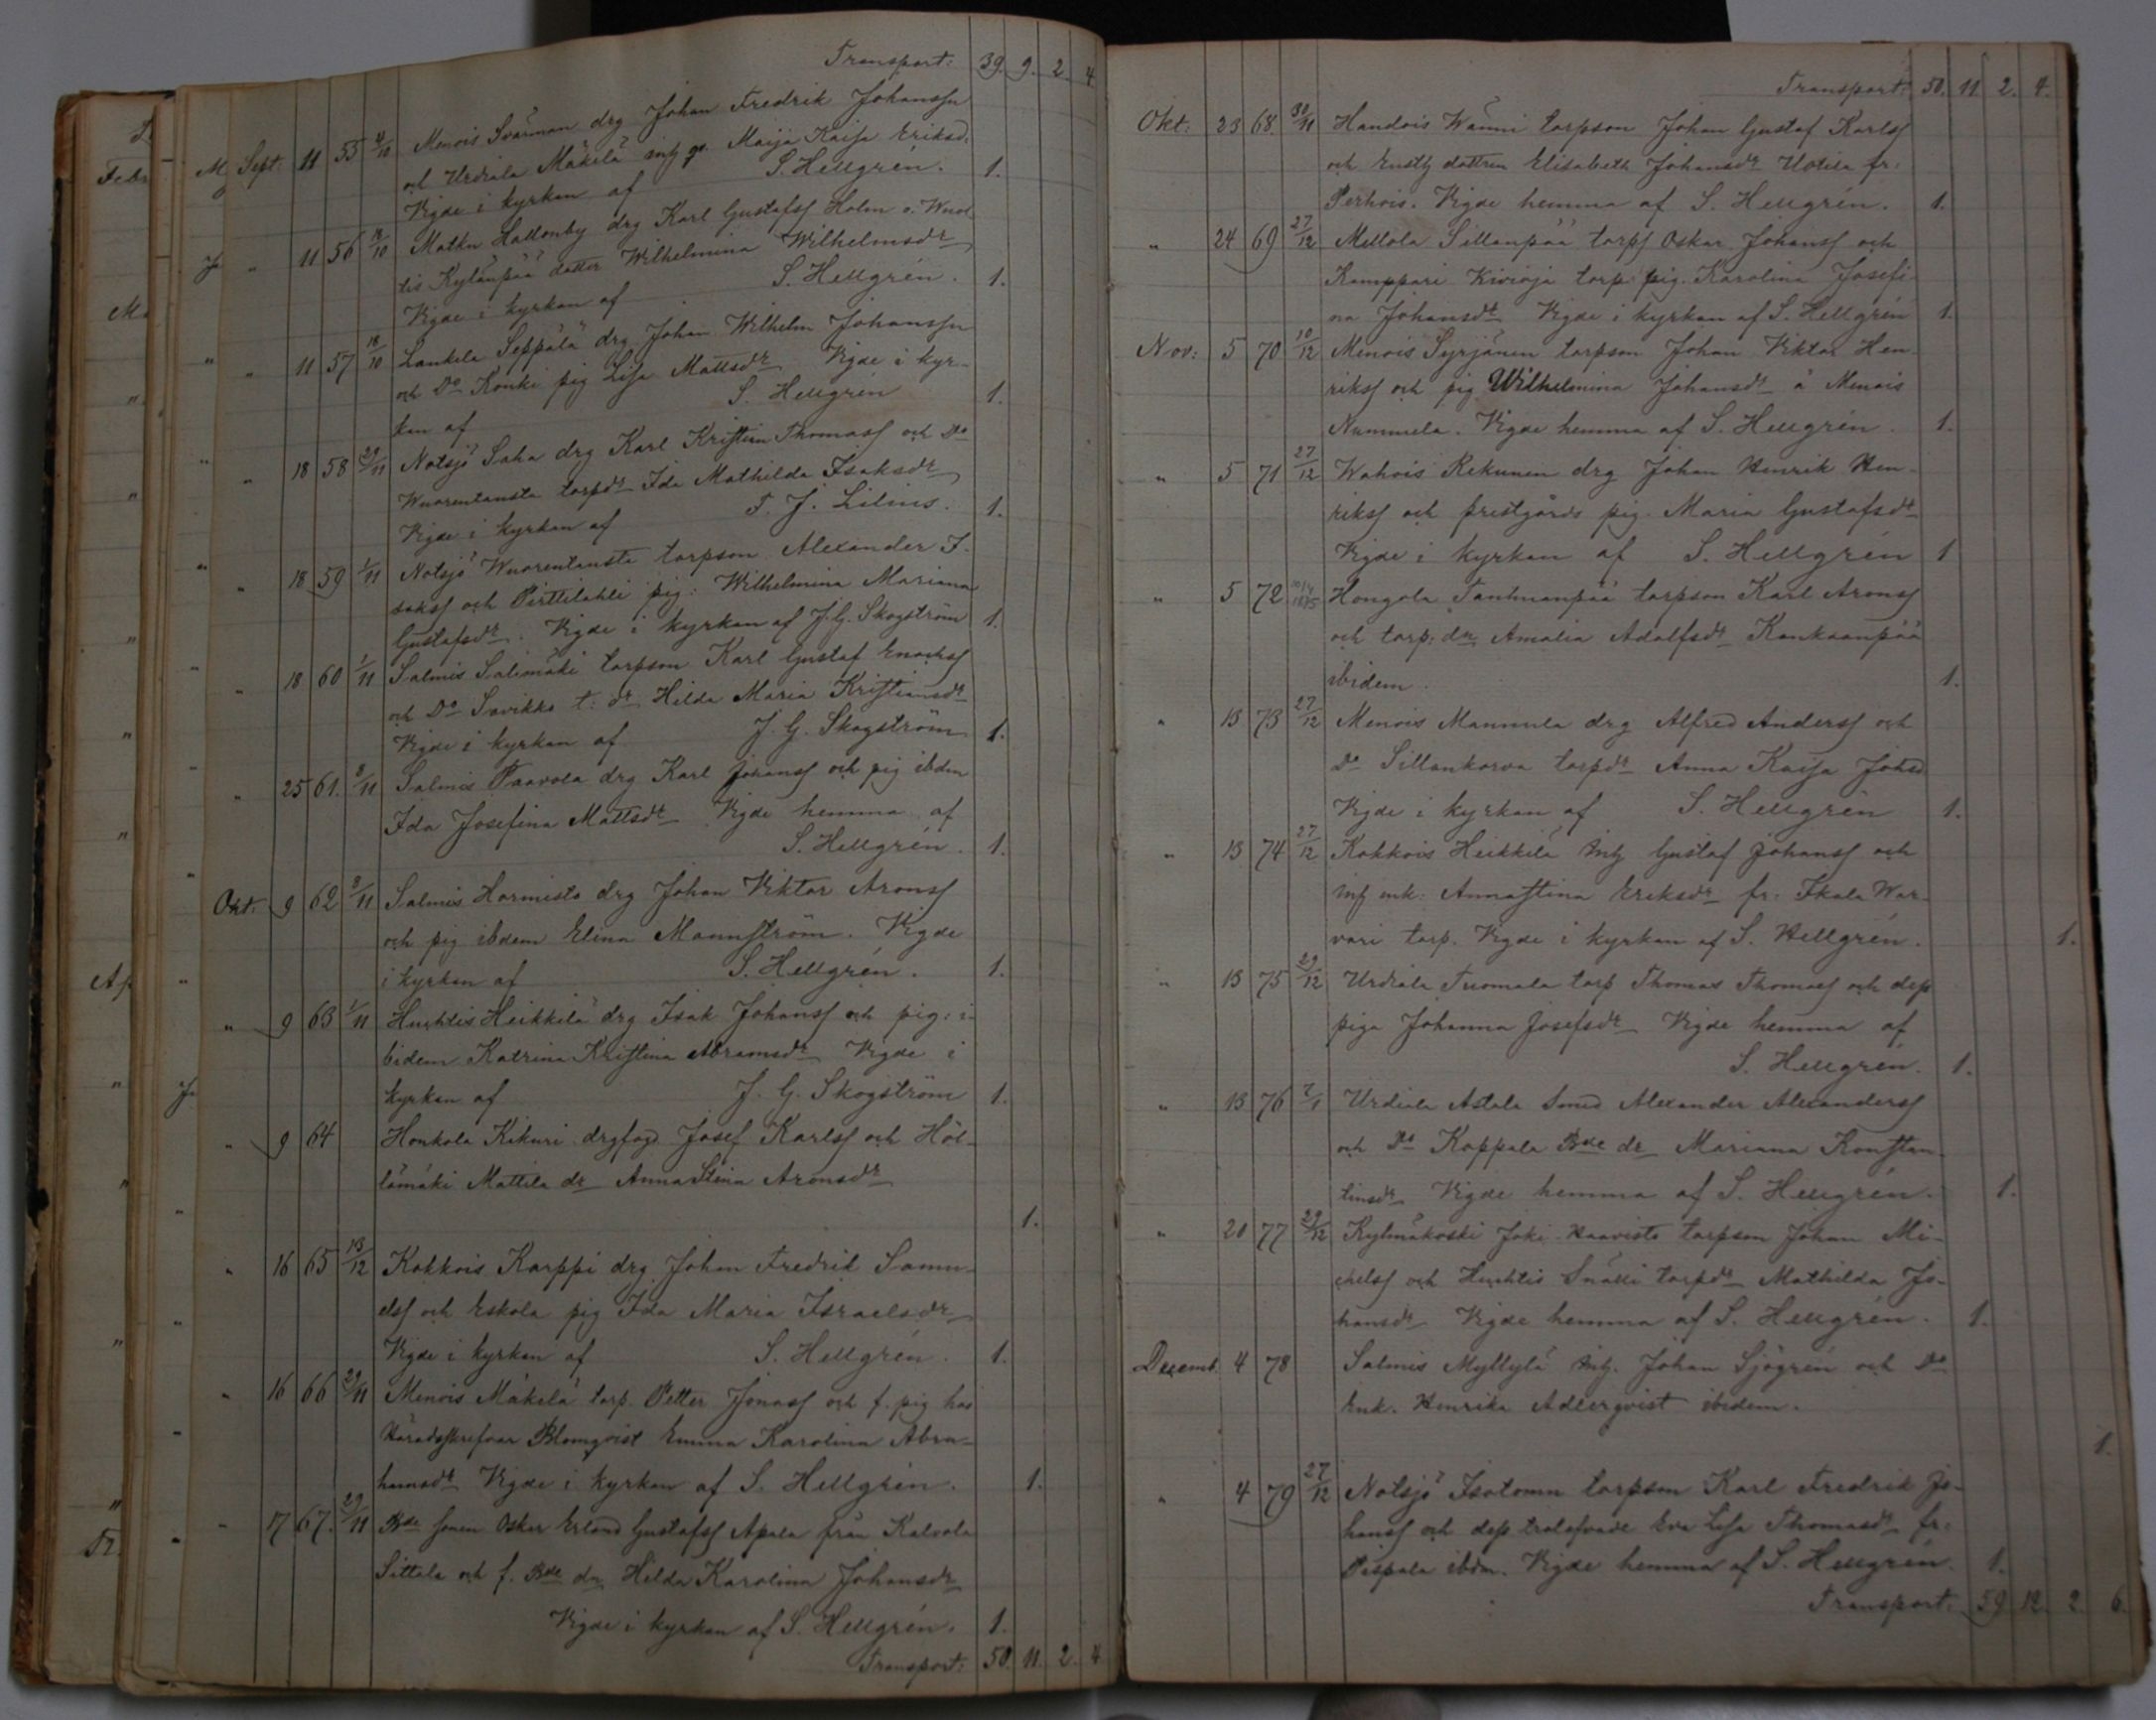 Transport: 39. 9. 2. 4.
Sept: 11 55 4/10 Menois Svärman drg Johan Fredrik Johanssn
och Urdiala Mäkelä inhg Maija Kaisa Eriksd.
Vigde i kyrkan af S. Hellgrén. 1.
" 11 56 18/10 Matku Hallonby drg Karl Gustafss Holm o.
Kylänpää dotter Wilhelmina Wilhelmsdr
Vigde i kyrkan af S. Hellgrén. 1.
" 11 57 18/10 Laukela Seppälä drg Johan Wilhelm Johanssn
och Do Konki pig Lisa Mattsdr Vigde i kyr-
kan af S. Hellgrén 1.
" 18 58 29/11 Notsjö Saha drg Karl Kristian Thomass och Do
Wuorentausta torpdr Ida Mathilda Isaksdr
Vigde i kyrkan af F. J. Lilius. 1.
" 18 59 1/11 Notsjö Wuorentausta torpson Alexander I-
sakss och Pirttilahti pig: Wilhelmina Mariana
Gustafsdr. Vigde i kyrkan af J. G. Skogström 1.
" 18 60 1/11 Salmis Salimäki torpson Karl Gustaf Enochss
och Do Savikko t: dr Hilda Maria Kristiansdr
Vigde i kyrkan af J. G. Skogström 1.
" 25 61. 8/11 Salmis Paavola drg Karl Johanss och pig ibdm
Ida Josefina Mattsdr Vigde hemma af
S. Hellgrén. 1.
Okt: 9 62 8/11 Salmis Hormisto drg Johan Viktor Aronss
och pig ibdem Elina Mannström. Vigde
i kyrkan af S. Hellgrén. 1.
" 9 63 1/11 Huhtis Heikkilä drg Isak Johanss och pig: i-
bidem Katrina Kristina Abramsdr Vigde i
kyrkan af J. G. Skogström 1.
" 9 64 Honkola Kikuri drgfogd Josef Karlss och Höl-
lämäki Mattila dr Anna Stina Aronsdr
1.
" 16 65 13/12 Kokkois Karppi drg Johan Fredrik Samu-
elss och Eskola pig Ida Maria Israelsdr
Vigde i kyrkan af S. Hellgrén. 1.
" 16 66 29/11 Menois Mäkelä torp. Petter Jonass och f. pig hos
Häradsskrifvar Blomqvist Emma Karolina Abra-
hamsdr Vigde i kyrkan af S. Hellgrén. 1.
" 17 67. 29/11 Bde sonen Oskar Erland Gustafss Apala från Kalvola
Sittala och f. Bde dr Hilda Karolina Johansdr
Vigde i kyrkan af S. Hellgrén. 1.
Transport: 50. 11. 2. 4.
Transport: 50. 11. 2. 4.
Okt: 23 68. 30/11 Handois Wänni torpson Johan Gustaf Karlss
och dottren Elisabeth Johansdr Uotila fr.
Perhois. Vigde hemma af S. Hellgrén. 1.
" 24 69 27/12 Mellola Sillanpää torps Oskar Johanss och
Kamppari Kivioja torp. pig. Karolina Josefi-
na Johansdr Vigde i kyrkan af S. Hellgrén 1.
Nov: 5 70 10/12 Menois Syrjänen torpson Johan Viktor Hen-
rikss och pig Wilhelmina Johansdr å Menois
Nummela. Vigde hemma af S. Hellgrén. 1.
" 5 71 27/12 Wahois Rekunen drg Johan Henrik Hen-
rikss och prestgårds pig. Maria Gustafsdr
Vigde i kyrkan af S. Hellgrén 1
" 5 72 Hongola Tanhuanpää torpson Karl Aronss
och torp: dr Amalia Adolfsdr Kankaanpää
ibidem. 1.
" 13 73 27/12 Menois Mannula drg Alfred Anderss och
Do Sillankorva torpdr Anna Kaisa Johsd
Vigde i kyrkan af S. Hellgrén 1.
" 13 74 27/12 Kokkois Heikkilä inhg Gustaf Johanss och
inh enk: Annastina Eriksdr fr. Ikala War-
vari torp. Vigde i kyrkan af S. Hellgrén. 1.
" 13 75 29/12 Urdiala Tuomala torp Thomas Thomass och dess
piga Johanna Josefsdr Vigde hemma af
S. Hellgrén. 1.
" 13 76 7/1 Urdiala Astala Smed Alexander Alexanderss
och Do Kappala Bde dr Mariana Konstan-
tinsdr Vigde hemma af S. Hellgrén. 1.
" 20 77 29/12 Kylmäkoski Joki Haavisto torpson Johan Mi-
chelss och Huhtis Snälli torpdr Mathilda Jo-
hansdr Vigde hemma af S. Hellgrén. 1.
Decemb. 4 78 Salmis Myllylä inh. Johan Sjögrén och Do
Enk. Henrika Adlerqvist ibidem.
1.
" 4 79 27/12 Notsjö Isotomu torpson Karl Fredrik Jo-
hanss och dess trolofvade Eva Lisa Thomasdr fr.
Pispala ibdm. Vigde hemma af S. Hellgrén. 1.
Transport: 59. 12. 2. 6.